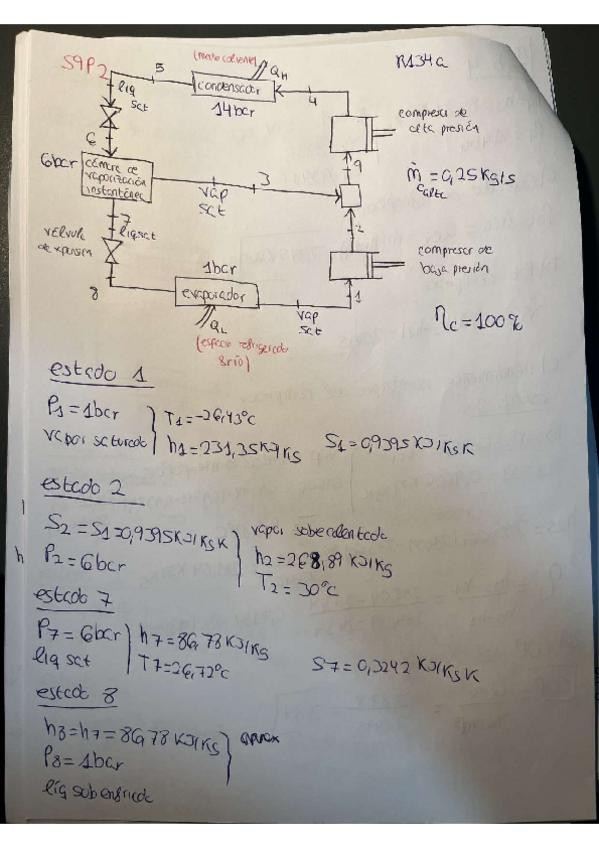 S9P2
5
(medio caliente)
QH
R134a
liq
sat
condensador
14bar
4
compresor de
alta presión
6
6bar
cámara de
vaporización
instantánea
vap
sat
3
9
ṁ = 0,25 Kg/s
c alta
7
liq sat
válvula
de expansión
2
compresor de
baja presión
1bar
evaporador
8
vap
sat
1
QL
(espacio refrigerado
frío)
ηc = 100%
estado 1
P1 = 1bar
T1 = -26,43°C
vapor saturado
h1 = 231,35 KJ/Kg
S1 = 0,9395 KJ/KgK
estado 2
S2 = S1 = 0,9395 KJ/KgK
vapor sobrecalentado
P2 = 6bar
h2 = 268,89 KJ/Kg
T2 = 30°C
estado 7
P7 = 6bar
h7 = 86,78 KJ/Kg
liq sat
T7 = 26,72°C
S7 = 0,3242 KJ/KgK
estado 8
h8 = h7 = 86,78 KJ/Kg
aprox
P8 = 1bar
liq subenfriado